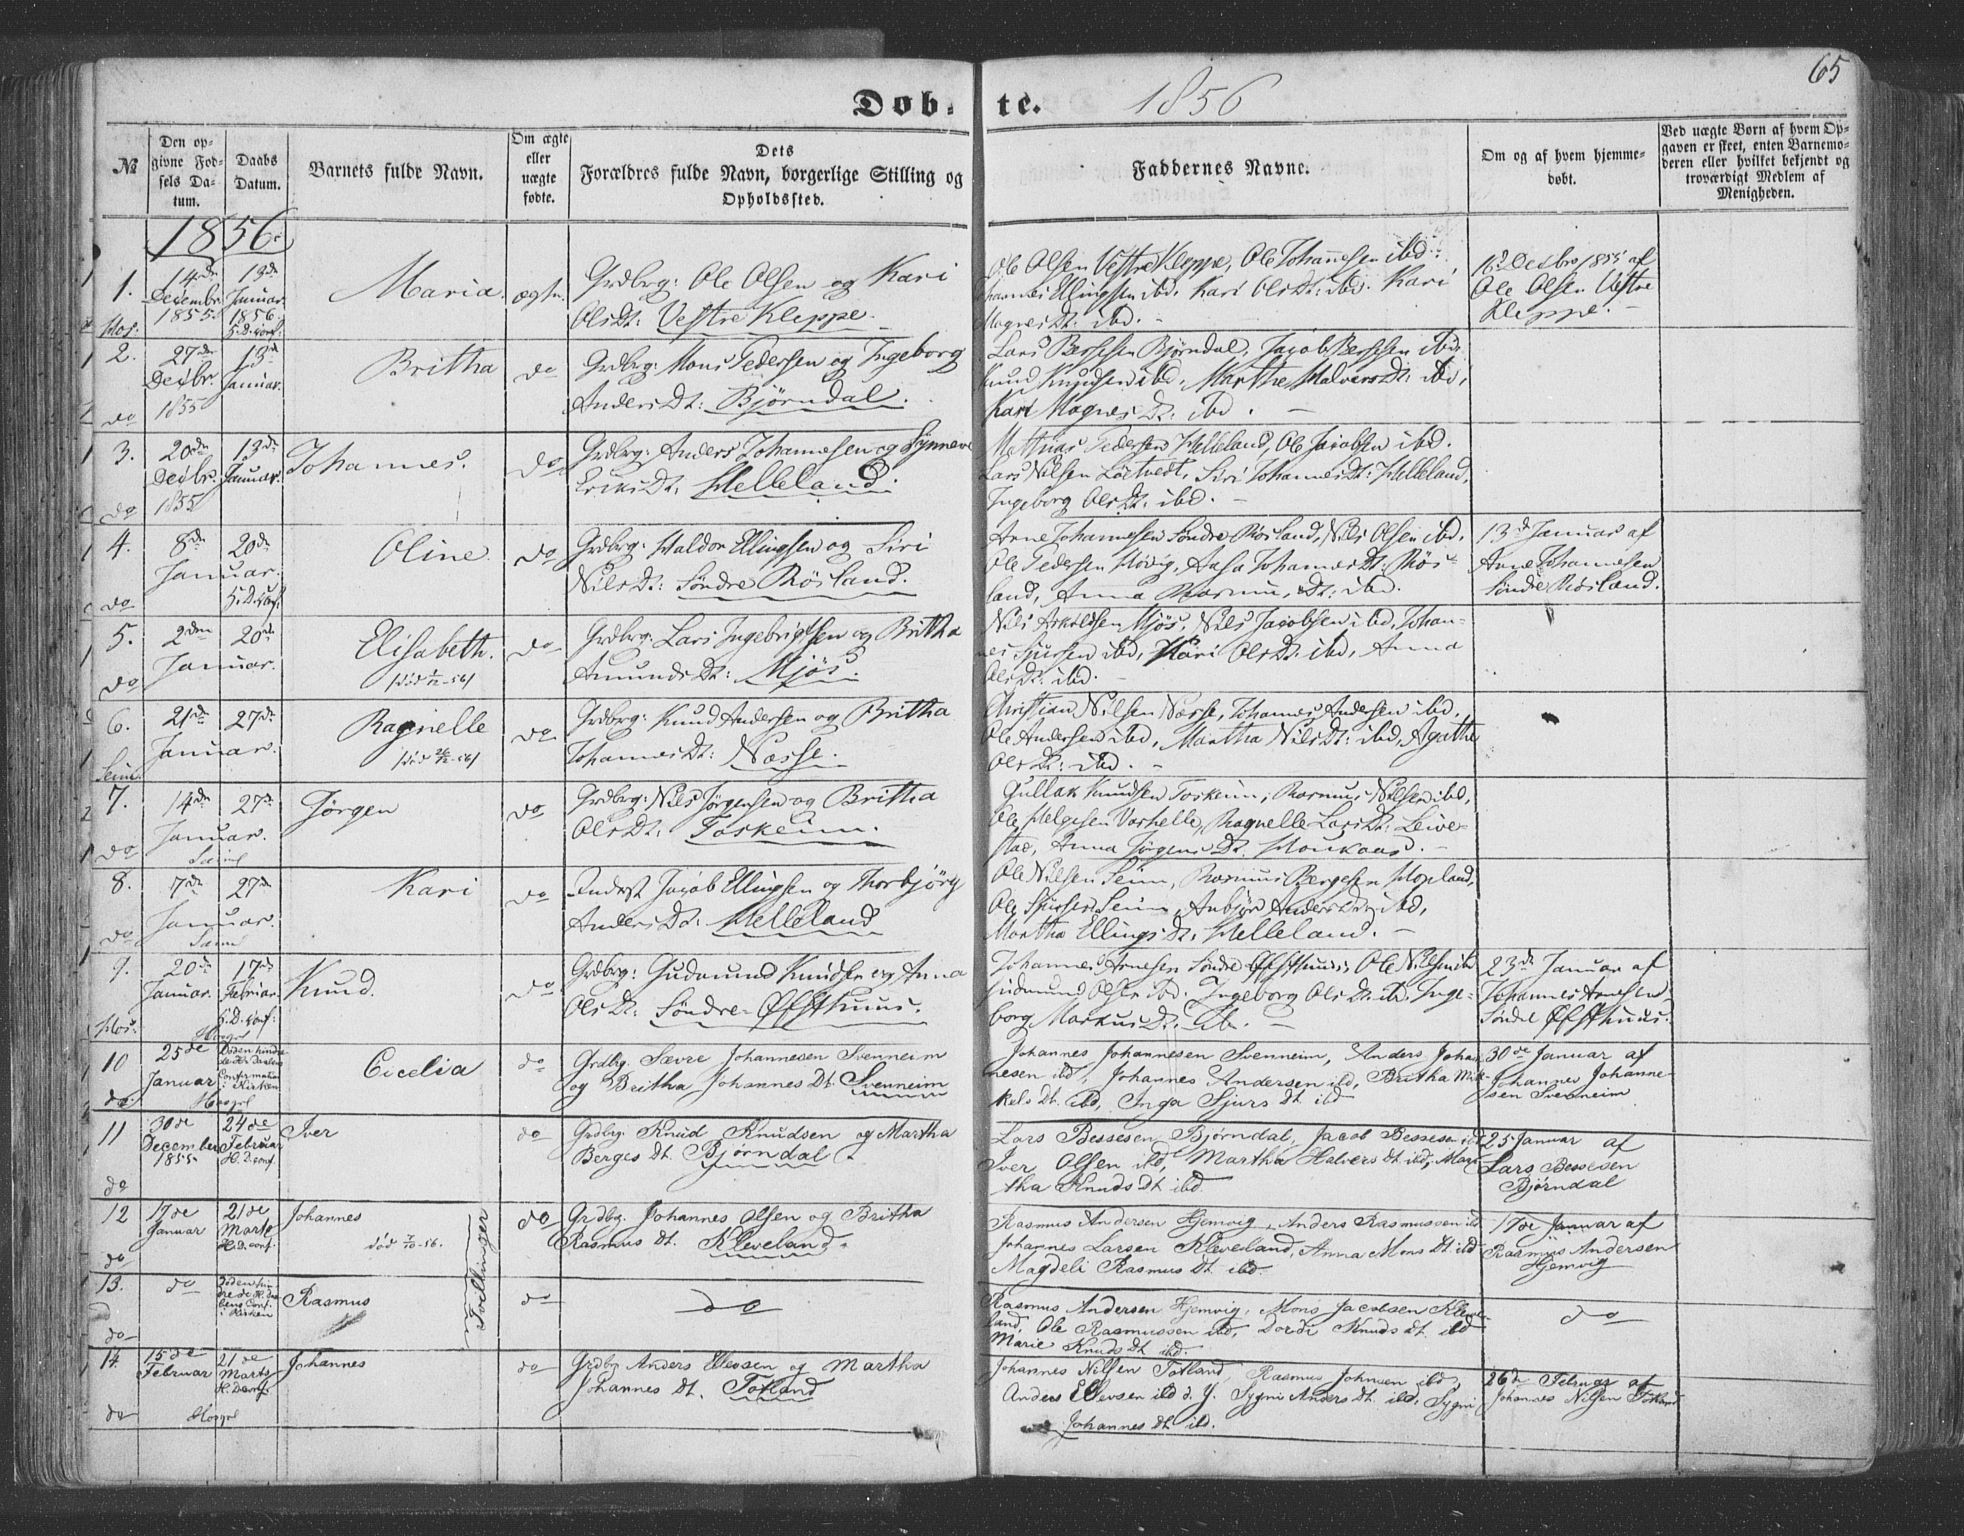 65
Døb-
te.
1856
№
Den op-
givne Fød-
sels Da-
tum.
Daabs
Datum.
Barnets fulde Navn.
Om ægte
eller
uægte
fødte.
Dets
Forældres fulde Navn, borgerlige Stilling og
Opholdssted.
Faddernes Navne.
Om og af hvem hjemme-
døbt.
Ved uægte Børn af hvem Op-
gaven er skeet, enten Barnemo-
deren eller hvilket bekjendt og
troværdigt Medlem af
Menigheden.
1856
1.
14de
Decembr.
1855.
13de
Januar
1856
Maria.
Grdbrg: Ole Olsen og Kari
OlsDt: Vestre Kleppe.
Ole Olsen Vestre Kleppe, Ole Johannesen ibd.
Johannes Ellingsen ibd. Kari OlsDt: ibd. Kari
MagnesDt: ibd.
Desbr 1855 af
Ole Olsen Vestre
Kleppe.
2.
do
27de
Desbr.
1855
13de
Januar.
Britha
do
Grdbrg: Mons Pedersen og Ingeborg
AndersDt: Bjørndal.
Lars Bessesen Bjørndal, Jacob Bessesen ibd.
Knud Knudsen ibd, Marthe HalversDt: ibd,
Kari MagnesDt: ibd.
3.
do
20de
Desbr.
1855
13de
Januar.
Johannes.
do
Grdbrg: Anders Johannesen og Synneve
EriksDt. Helleland.
Mathias Pedersen Helleland, Ole Jacobsen ibd.
Lars Nilsen Løtvedt, Siri JohannesDt: Helleland,
Ingeborg OlsDt: ibd.
4.
do
8de
Januar.
20de
H.D. conf.
Oline.
do
Grdbrg: Haldor Ellingsen og Siri
NilsDt: Søndre Røsland.
Arne Johannesen Søndre Røsland, Nils Olsen ibd.
Ole Pedersen Høvig, Aasa JohannesDt: Røs-
land, Anna Dt: ibd.
13de Januar af
Arne Johannesen
Søndre Røsland.
5.
do
2den
Januar.
20de
Elisabeth.
do
Grdbrg: Lars Ingebrigtsen og Britha
AmundsDt: Mjøs.
Nils Mjøs, Nils Jacobsen ibd, Johan-
nes Sjursen ibd, Kari OlsDt: ibd, Anna
OlsDt: ibd.
6.
Seim
21de
Januar.
27de
Ragnelle
do
Grdbrg: Knud Andersen og Britha
JohannesDt: Næsse.
Christian Nilsen Næsse, Johannes Andersen ibd,
Ole Andersen ibd, Martha NilsDt: ibd, Agatha
OlsDt: ibd.
7.
do
14de
Januar.
27de
Jørgen
do
Grdbrg: Nils Jørgensen og Britha
OlsDt: Toskeim.
Gullak Knudsen Toskeim, Rasmus Nilsen ibd,
Ole Helgesen Vaxhelle, Ragnelle LarsDt: Leive-
stad, Anna JørgensDt. Houkaas.
8.
do
7de
Januar.
27de
Kari
do
Inderst Jacob Ellingsen og Thorbjørg
AndersDt: Helleland
Ole Nilsen Seim, Rasmus Bergesen Hopland,
Ole Sjursen Seim, Anbjør AndersDt: ibd,
Martha EllingsDt. Helleland.
9.
Hos.
20de
Januar.
17de
Februar.
H.D. conf:
Knud.
do
Grdbrg: Gudmund Knudsen og Anna
OlsDt: Søndre Øfsthuus.
Johannes Arnesen Søndre Øfsthuus, Ole Nilsen ibd
Gudmund Olsen ibd. Ingeborg OlsDt: ibd, Inge-
borg MarkusDt. ib.
23de Januar af
Johannes Arnesen
Søndre Øfsthuus.
10
do.
25de
Januar
Døden hindre
Confirmation
i Kirken
Cicelia
do
Grdbg. Sævre Johannesen Svenneim
og Britha Johannes Dt. Svenneim
Johannes Johannesen Svenneim, Anders Johan
nesen ibd, Johannes Andersen ibd, Britha Mik-
kels Dt. ibd, Inga Sjurs Dt. ibd
30de Januar af
Johannes Johanne-
sen Svenneim
11
do
30de
December
1855
24de
Februar
H.D. conf
Iver
do
Grdbg. Knud Knudsen og Martha
Berges Dt. Bjørndal
Lars Bessesen Bjørndal, Jacob Bessesen ibd
Iver Olsen ibd, Martha Halvers Dt ibd, Mar
tha Knuds Dt. ibd
25 Januar af
Lars Bessesen
Bjørndal
12
do
17de
Januar
21de
Marts
H.D. conf.
Johannes
død 7/10-56.
Tvillinger
do
Grdbg. Johannes Olsen og Britha
Rasmus Dt. Kleveland.
Rasmus Andersen Hjemvig, Anders Rasmussen ibd
Johannes Larsen Kleveland, Anna Mons Dt. ibd
Magdeli Rasmus Dt. ibd.
17de Januar af
Rasmus Andersen
Hjemvig
13.
do
do
Rasmus
do
do
Rasmus Andersen Hjemvig, Mons Jacobsen Kleve-
land, Ole Rasmussen ibd, Dordi Knuds Dt. ibd
Marie Knuds Dt. ibd.
do
14.
do
15de
Februar
21de
Marts
H.D. conf
Johannes
do
Grdbg Anders Ellevsen og Martha
Johannes Dt. Totland
Johannes Nilsen Totland, Rasmus Johnsen ibd,
Anders Ellevsen ibd d. Y. Sygni Anders Dt. ibd, Sygni
Johannes Dt ibd.
26de Februar af
Johannes Nilsen Totland